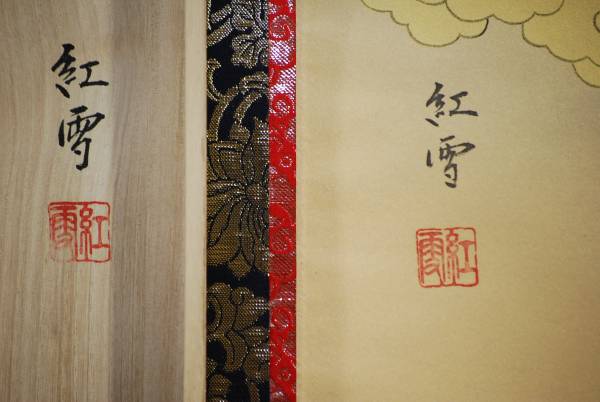 紅雪
紅雪
紅雪
紅雪